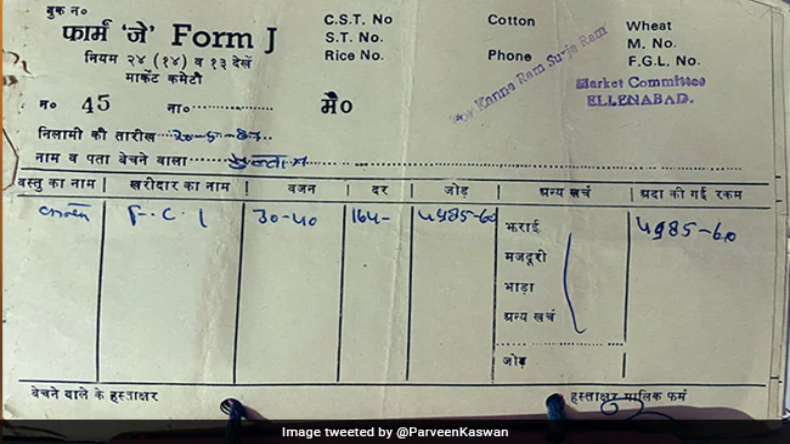 बुक न०
फार्म 'जे' Form J
नियम २४ (१४) व १३ देखें
मार्केट कमेटी
C.S.T. No
S.T. No.
Rice No.
Cotton
Phone
Wheat
M. No.
F.G.L. No.
For Kanna Ram Surja Ram
Market Committee
ELLENABAD.
न० 45 ना०
मै०
निलामी की तारीख
नाम व पता बेचने वाला
वस्तु का नाम | खरीदार का नाम | वजन | दर | जोड़ | अन्य खर्च | अदा की गई रकम
F.C.I 30-40 164- 4985-60 4985-60
भराई
मजदूरी
भाड़ा
अन्य खर्च
जोड़
बेचने वाले के हस्ताक्षर
हस्ताक्षर मालिक फर्म
Image tweeted by @ParveenKaswan